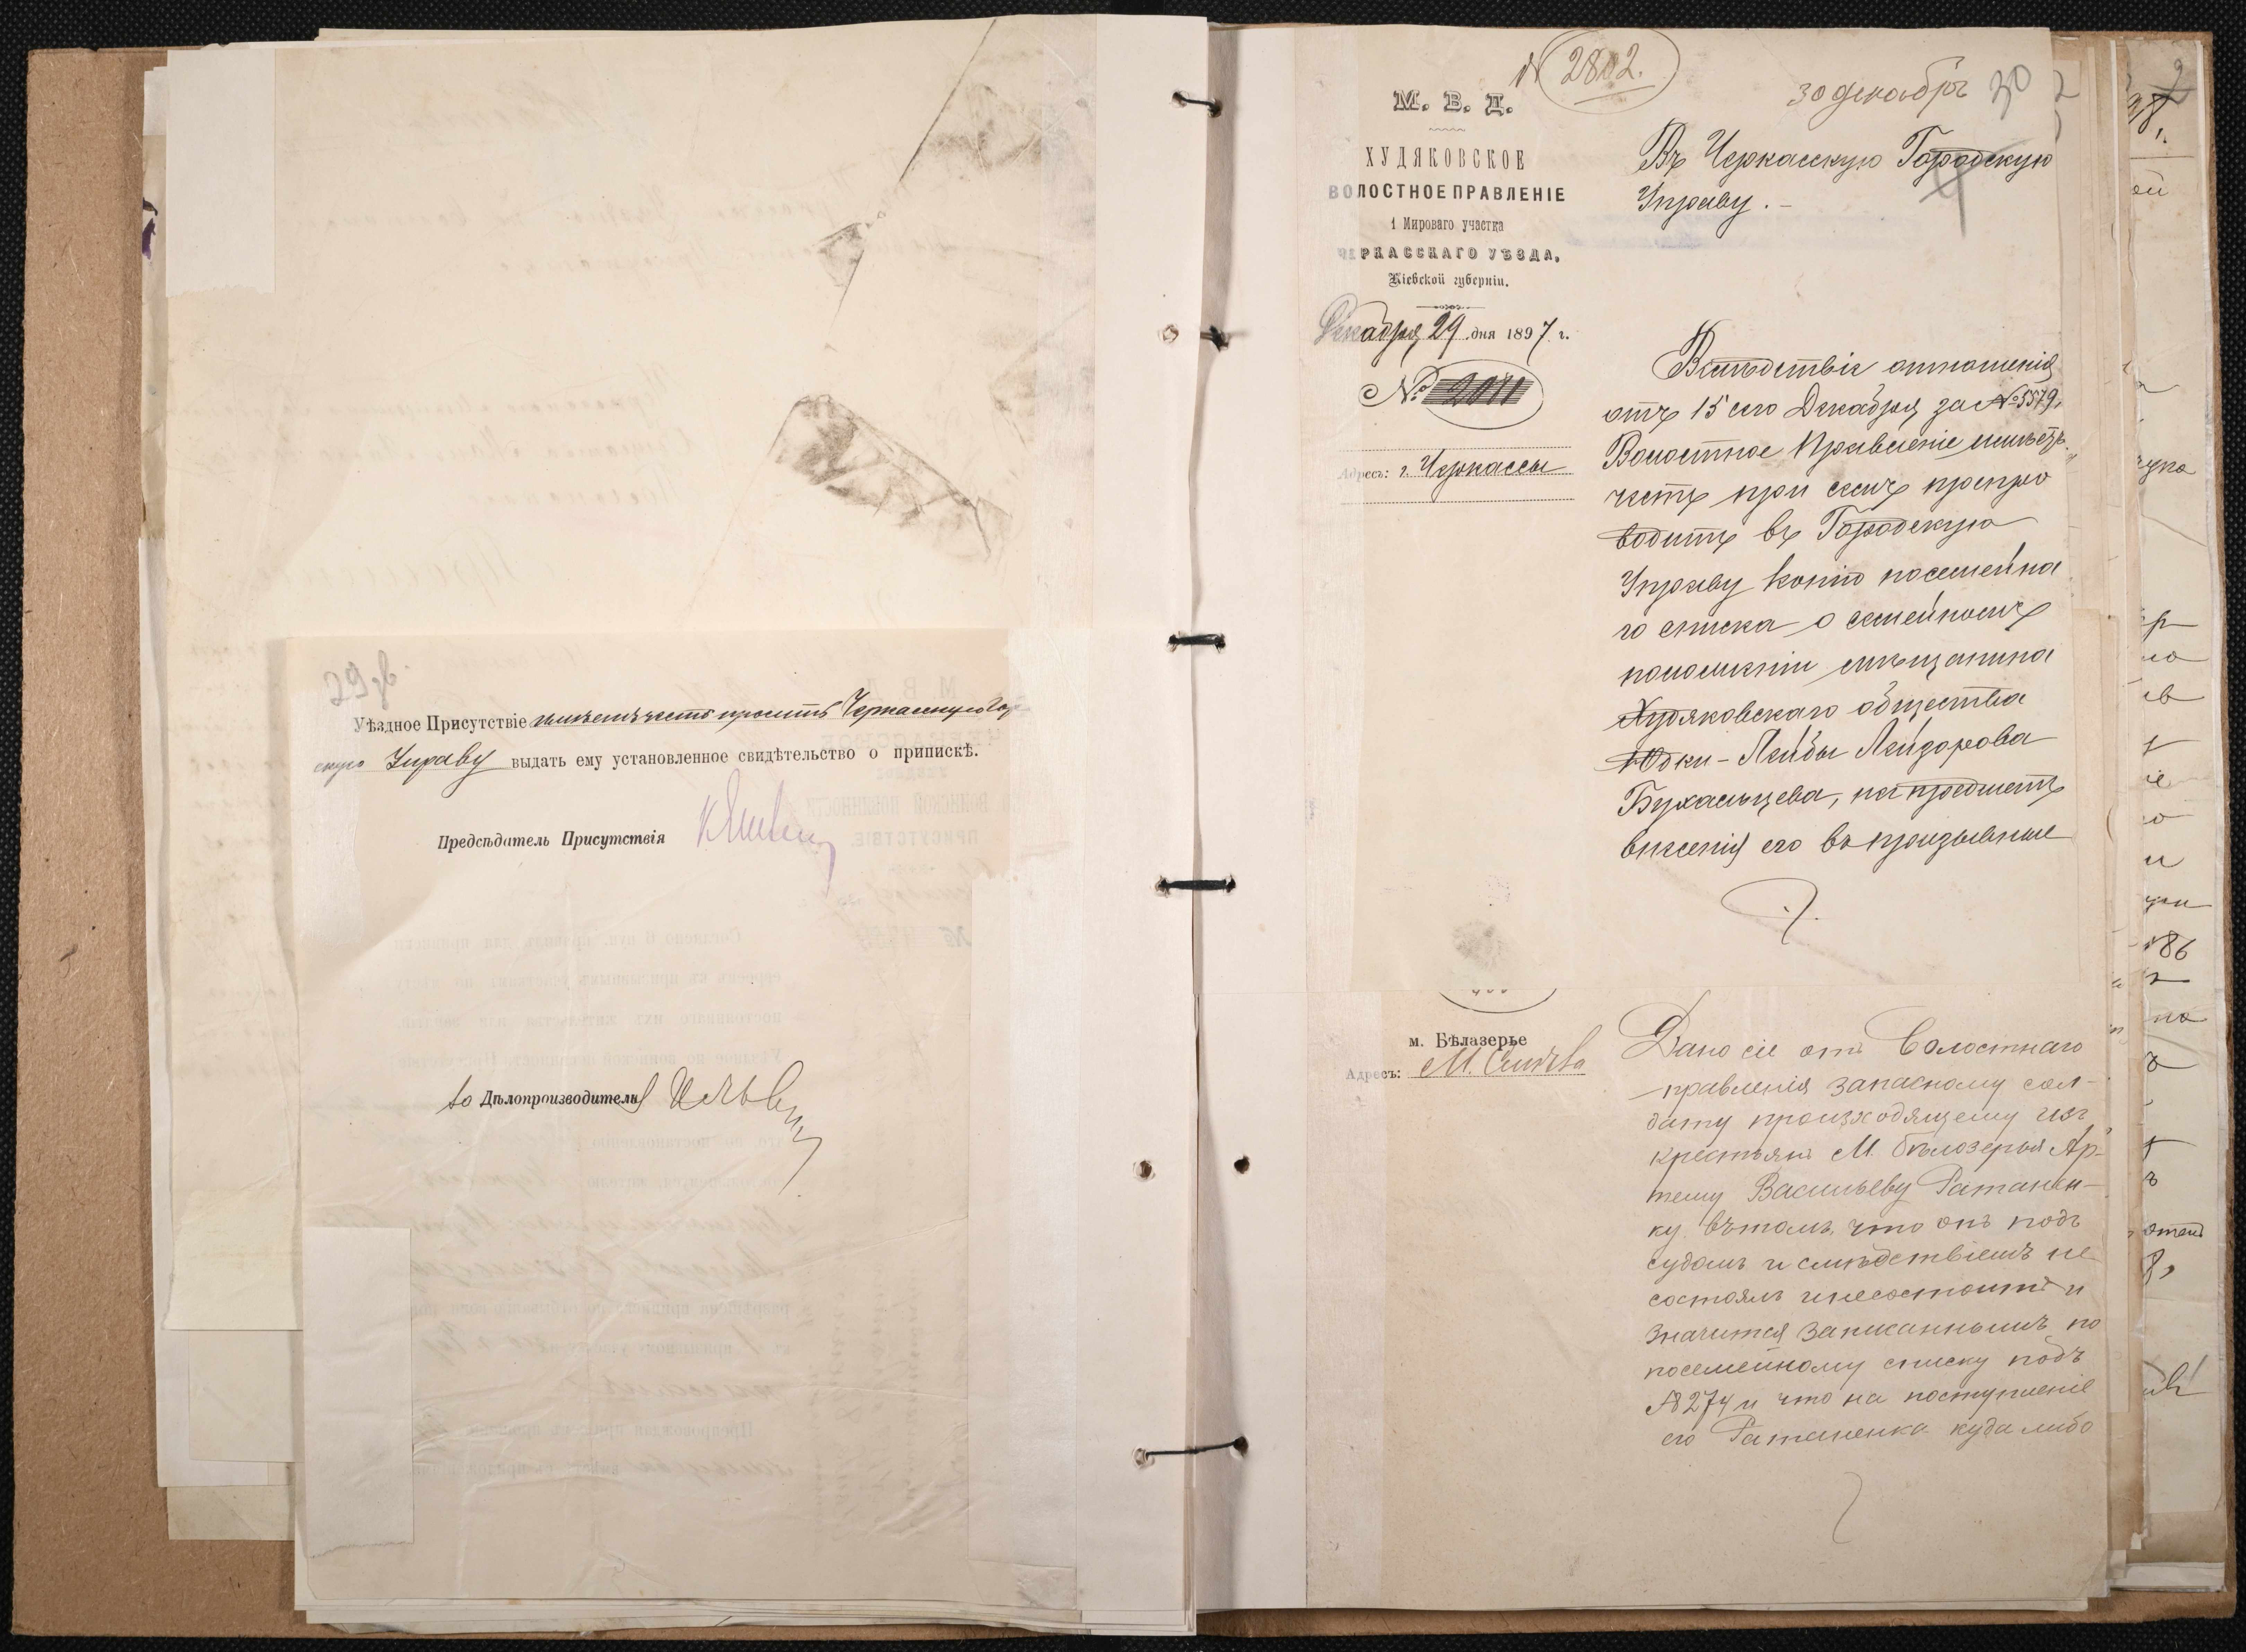 29 об
Уѣздное Присутствіе имѣетъ честь просить Черкасскую Гор
скую Управу выдать ему установленное свидѣтельство о припискѣ.
Предсѣдатель Присутствія
Дѣлопроизводитель
№ 2802.
30 декабрь 30
М. В. Д.
ХУДЯКОВСКОЕ
ВОЛОСТНОЕ ПРАВЛЕНІЕ
1 Мироваго участка
ЧЕРКАССКАГО УѢЗДА,
Кіевской губерніи.
Декабря 29 дня 1897 г.
№ 2011
Адресъ: г. Черкассы
Въ Черкасскую Городскую
Управу.
Вслѣдствіе отношенія
отъ 15 сего Декабря за № 5579,
Волостное Правленіе имѣетъ
честь при семъ препро
водить въ Городскую
Управу копію посемейна
го списка о семейномъ
положеніи мѣщанина
Худяковскаго общества
Юдки-Лейбы Лейзорова
Бухальцева, на предметъ
внесенія его въ призывные
м. Бѣлазерье
Адресъ: М. Смѣла
Дано сіе отъ Волостнаго
правленія запасному сол-
дату происходящему изъ
крестьянъ М. Бѣлозерья Ар-
тему Васильеву Ратанен-
ку въ томъ, что онъ подъ
судомъ и слѣдствіемъ не
состоялъ и несостоитъ и
значится записаннымъ по
посемейному списку подъ
№ 274 и что на поступленіе
его Ратаненка куда либо